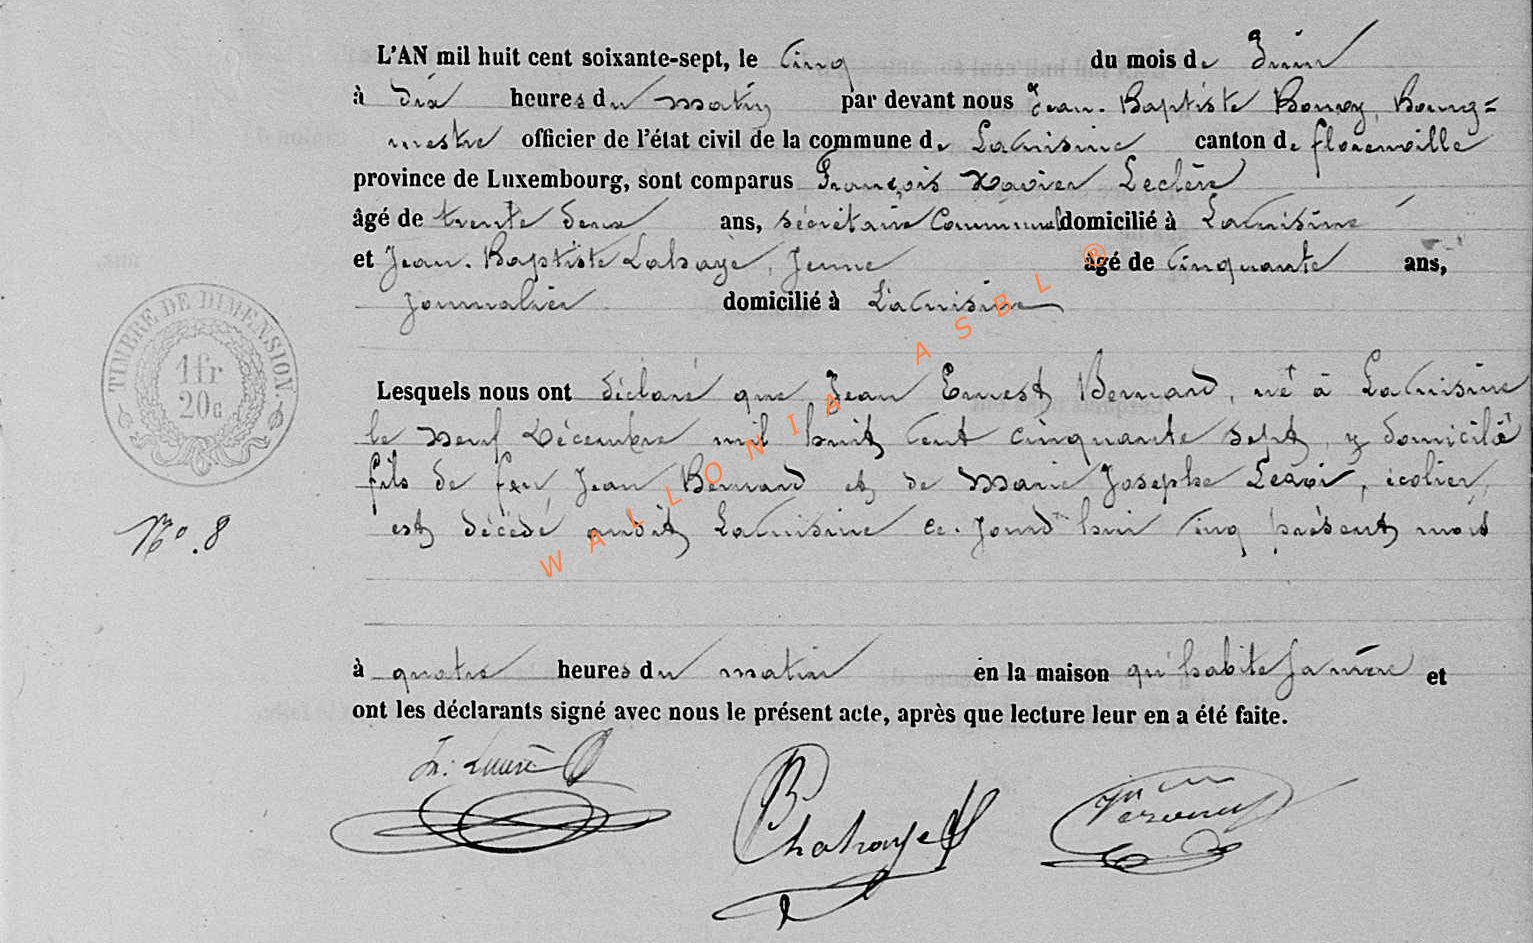 L'AN mil huit cent soixante-sept, le Cinq du mois de Juin
à dix heures du matin par devant nous Jean-Baptiste Bourg=
mestre officier de l'état civil de la commune de Lacuisine canton de florenville
province de Luxembourg, sont comparus François Xavier Leclère
âgé de trente deux ans, sécrétaire Communal domicilié à Lacuisine
et Jean-Baptiste Lahaye, Jeune âgé de Cinquante ans,
Journalier domicilié à Lacuisine
TIMBRE DE DIMENSION.
1 fr
20 c
Lesquels nous ont déclaré que Jean Ernest Bernard, né à Lacuisine
le neuf Décembre mil huit Cent cinquante sept, y domicilié
fils de feu Jean Bernard et de Marie Josephe, écolier,
est décédé audit Lacuisine ce-jourd'hui Cinq présent mois
No. 8
à quatre heures du matin en la maison qu'habite sa mère et
ont les déclarants signé avec nous le présent acte, après que lecture leur en a été faite.
WALLONIA ASBL ®